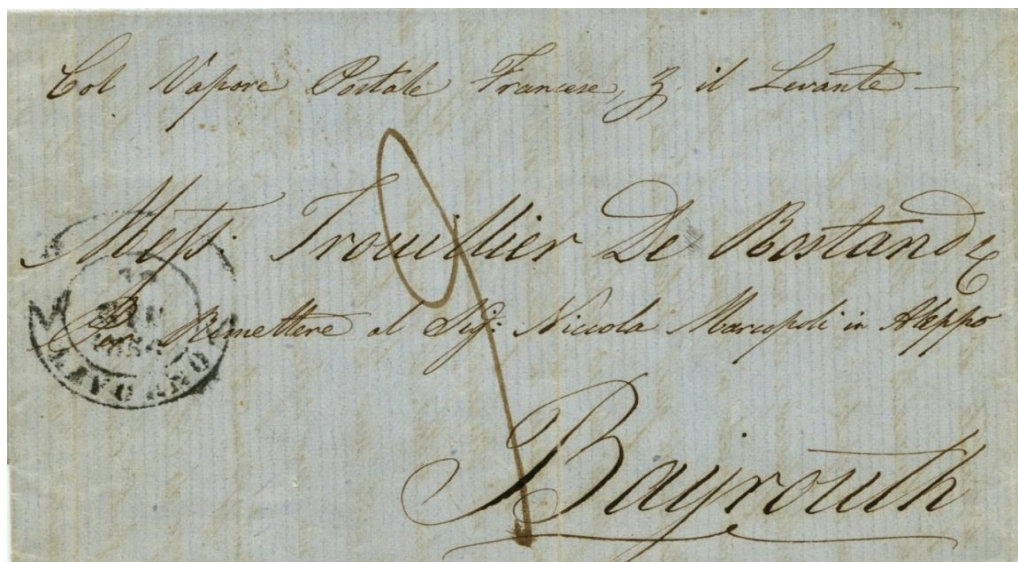 Col Vapore Postale Francese, p il Levante —
Messi. Trouillier De Rostand & C
Per Rimettere al Sigr: Niccola Marcopoli in Aleppo
Bayrouth
9